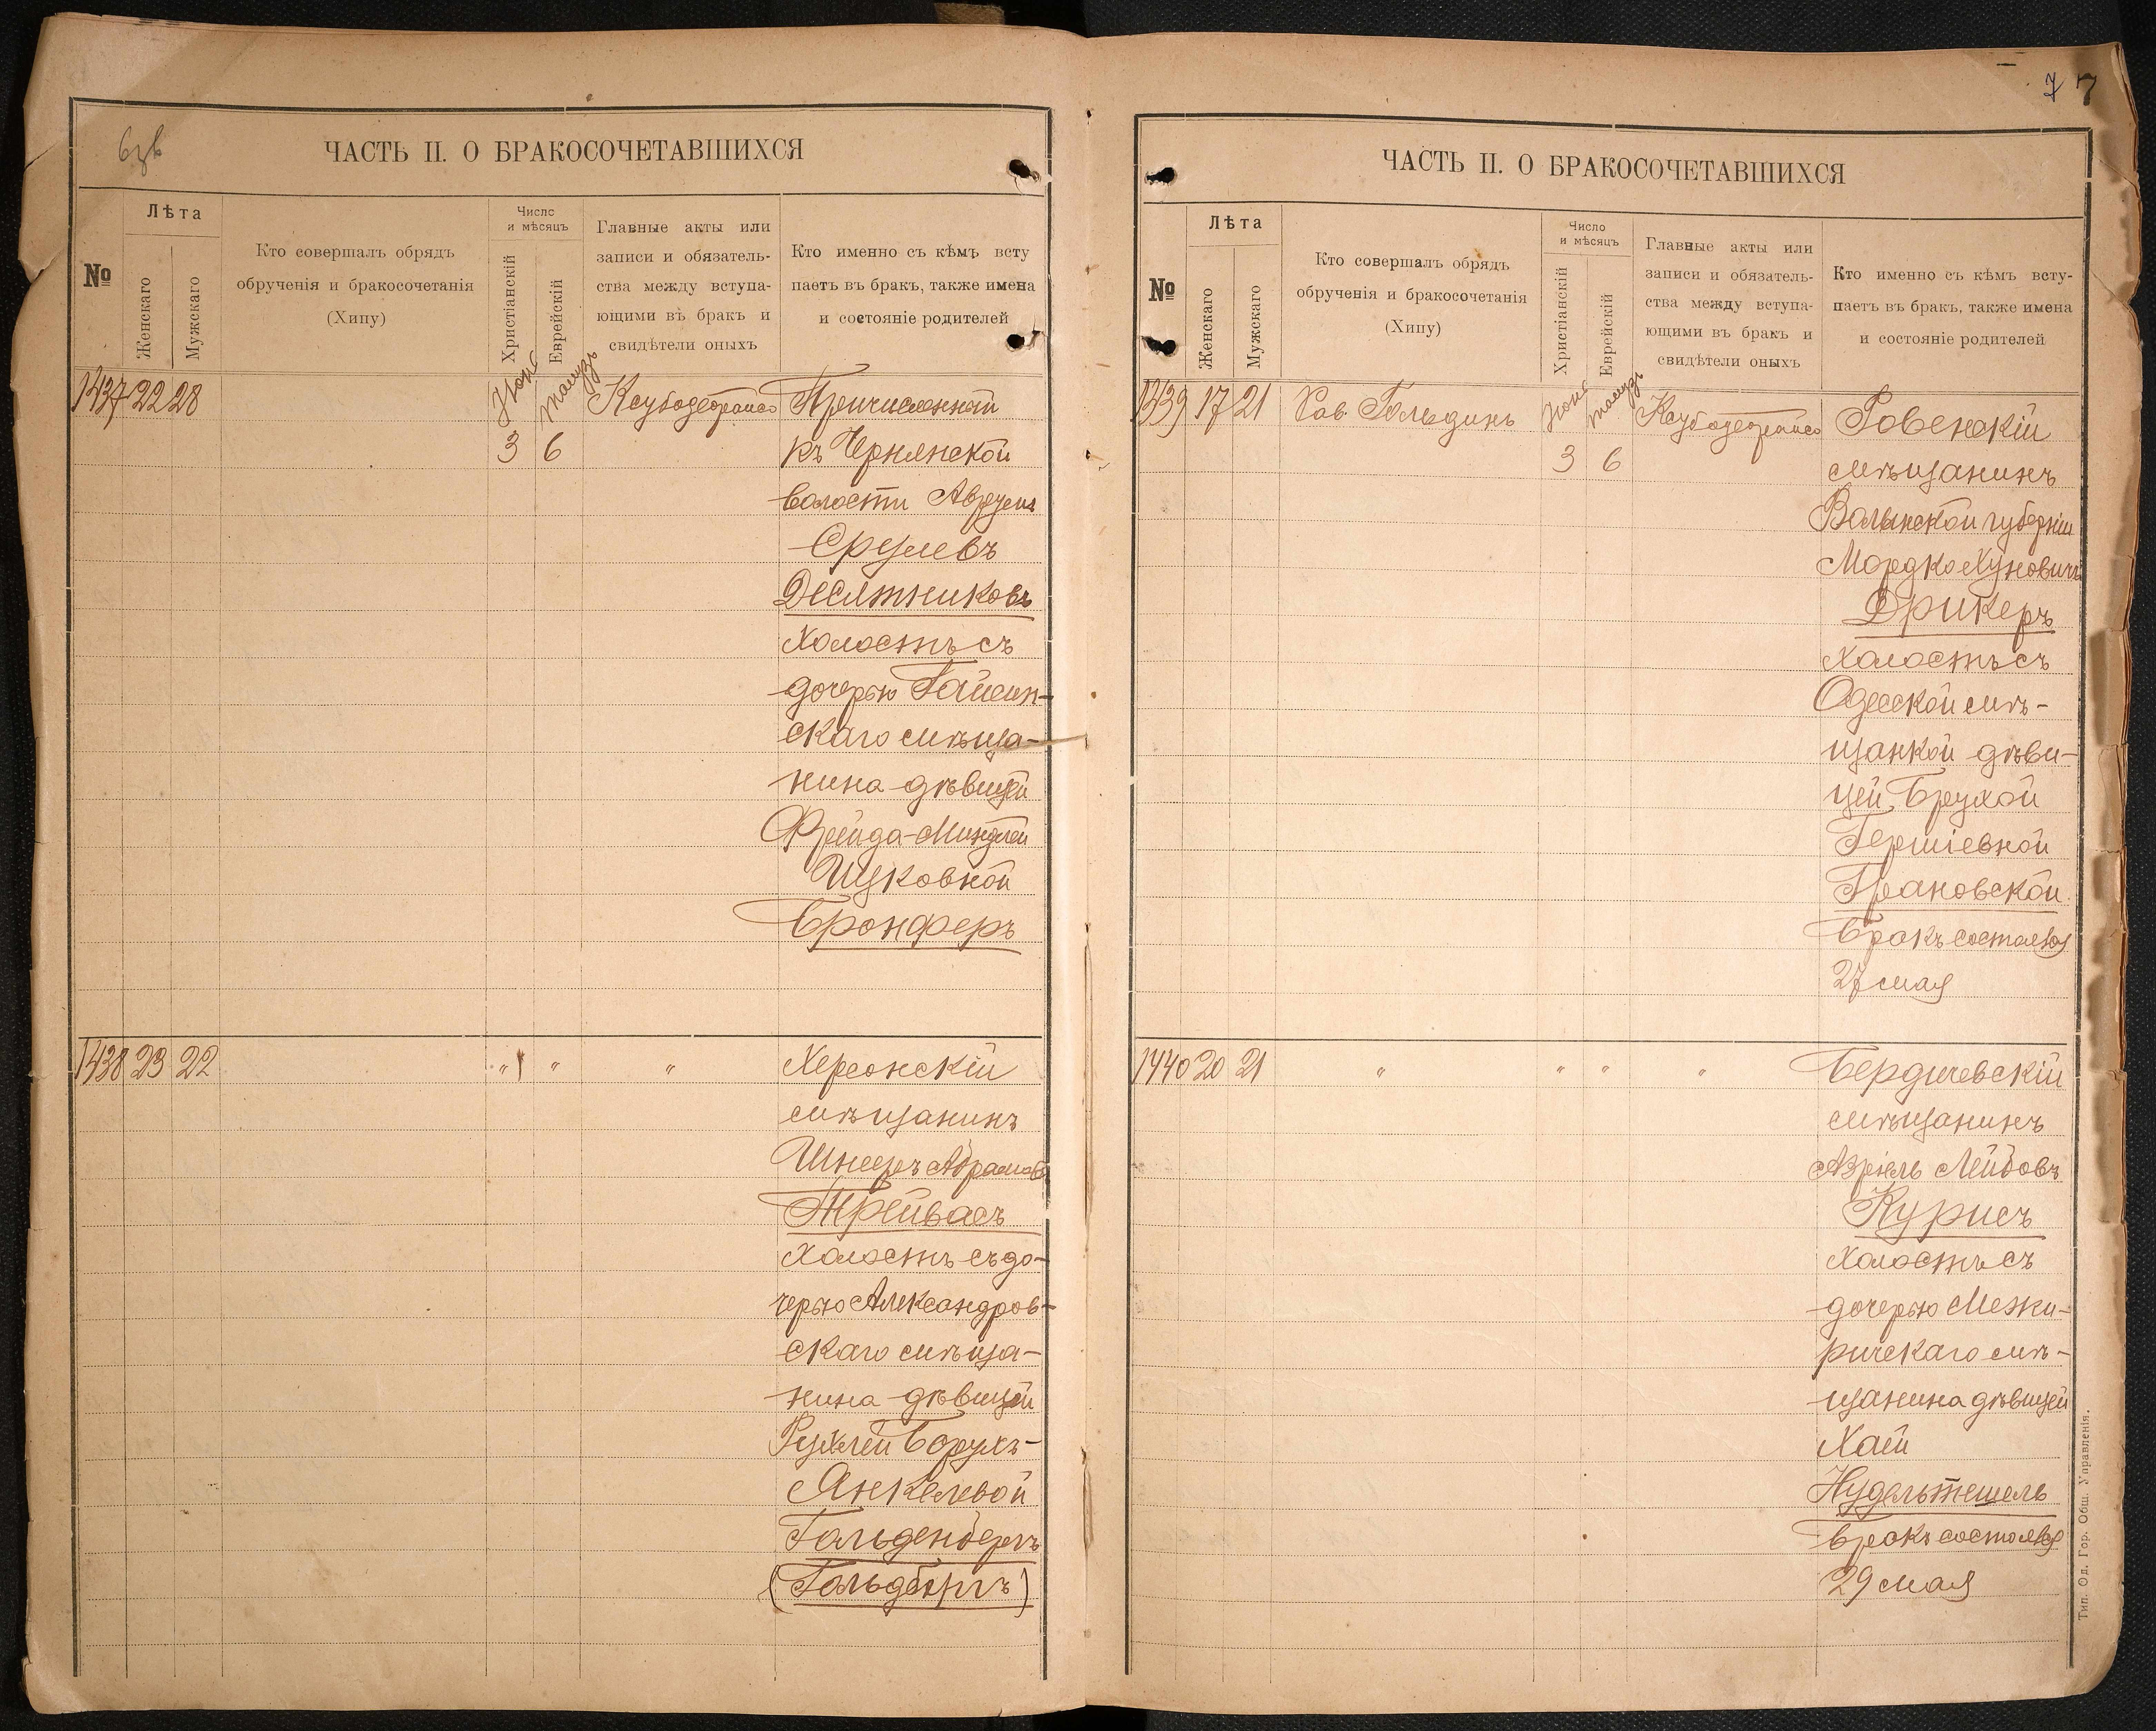 ЧАСТЬ II. О БРАКОСОЧЕТАВШИХСЯ
№
Лѣта
Женскаго
Мужскаго
Кто совершалъ обрядъ
обрученія и бракосочетанія
(Хипу)
Число
и мѣсяцъ
Христіанскій
Еврейскій
Главные акты или
записи и обязатель-
ства между вступа-
ющими въ бракъ и
свидѣтели оныхъ
Кто именно съ кѣмъ всту
паетъ въ бракъ, также имена
и состояніе родителей
1437 22 28
Тамузъ
3 6
Причисленный
къ Чернянской
волости Аврумъ
Срулевъ
Десятниковъ
холостъ съ
дочерью Гайсин-
скаго мѣща-
нина дѣвицей
Фрейда-Миндлей
Ицковной
Бронферъ
1438 23 22
" " "
Херсонскій
мѣщанинъ
Шнееръ Абрамовъ
Трейвасъ
холостъ съ до-
черью Александров-
скаго мѣща-
нина дѣвицей
Рухлей Борухъ-
Янкелевой
Гольденбергъ
(Гольдбергъ)
7 7
ЧАСТЬ II. О БРАКОСОЧЕТАВШИХСЯ
№
Лѣта
Женскаго
Мужскаго
Кто совершалъ обрядъ
обрученія и бракосочетанія
(Хипу)
Число
и мѣсяцъ
Христіанскій
Еврейскій
Главные акты или
записи и обязатель-
ства между вступа-
ющими въ бракъ и
свидѣтели оныхъ
Кто именно съ кѣмъ всту-
паетъ въ бракъ, также имена
и состояніе родителей
1439 17 21
Рав. Гольдинъ
Тамузъ
3 6
Ровенскій
мѣщанинъ
Волынской губерніи
Мордко Хуновичъ
Дрикеръ
холостъ съ
Одесской мѣ-
щанкой дѣви-
цей Брухой
Гершіевной
Грановской
Бракъ состоялся
27 мая
1440 20 21
" " " "
Бердичевскій
мѣщанинъ
Азріель Лейбовъ
Курисъ
холостъ съ
дочерью Межи-
ричскаго мѣ-
щанина дѣвицей
Хаей
Нудельтешель
Бракъ состоялся
29 мая
Тип. Од. Гор. Общ. Управленія.